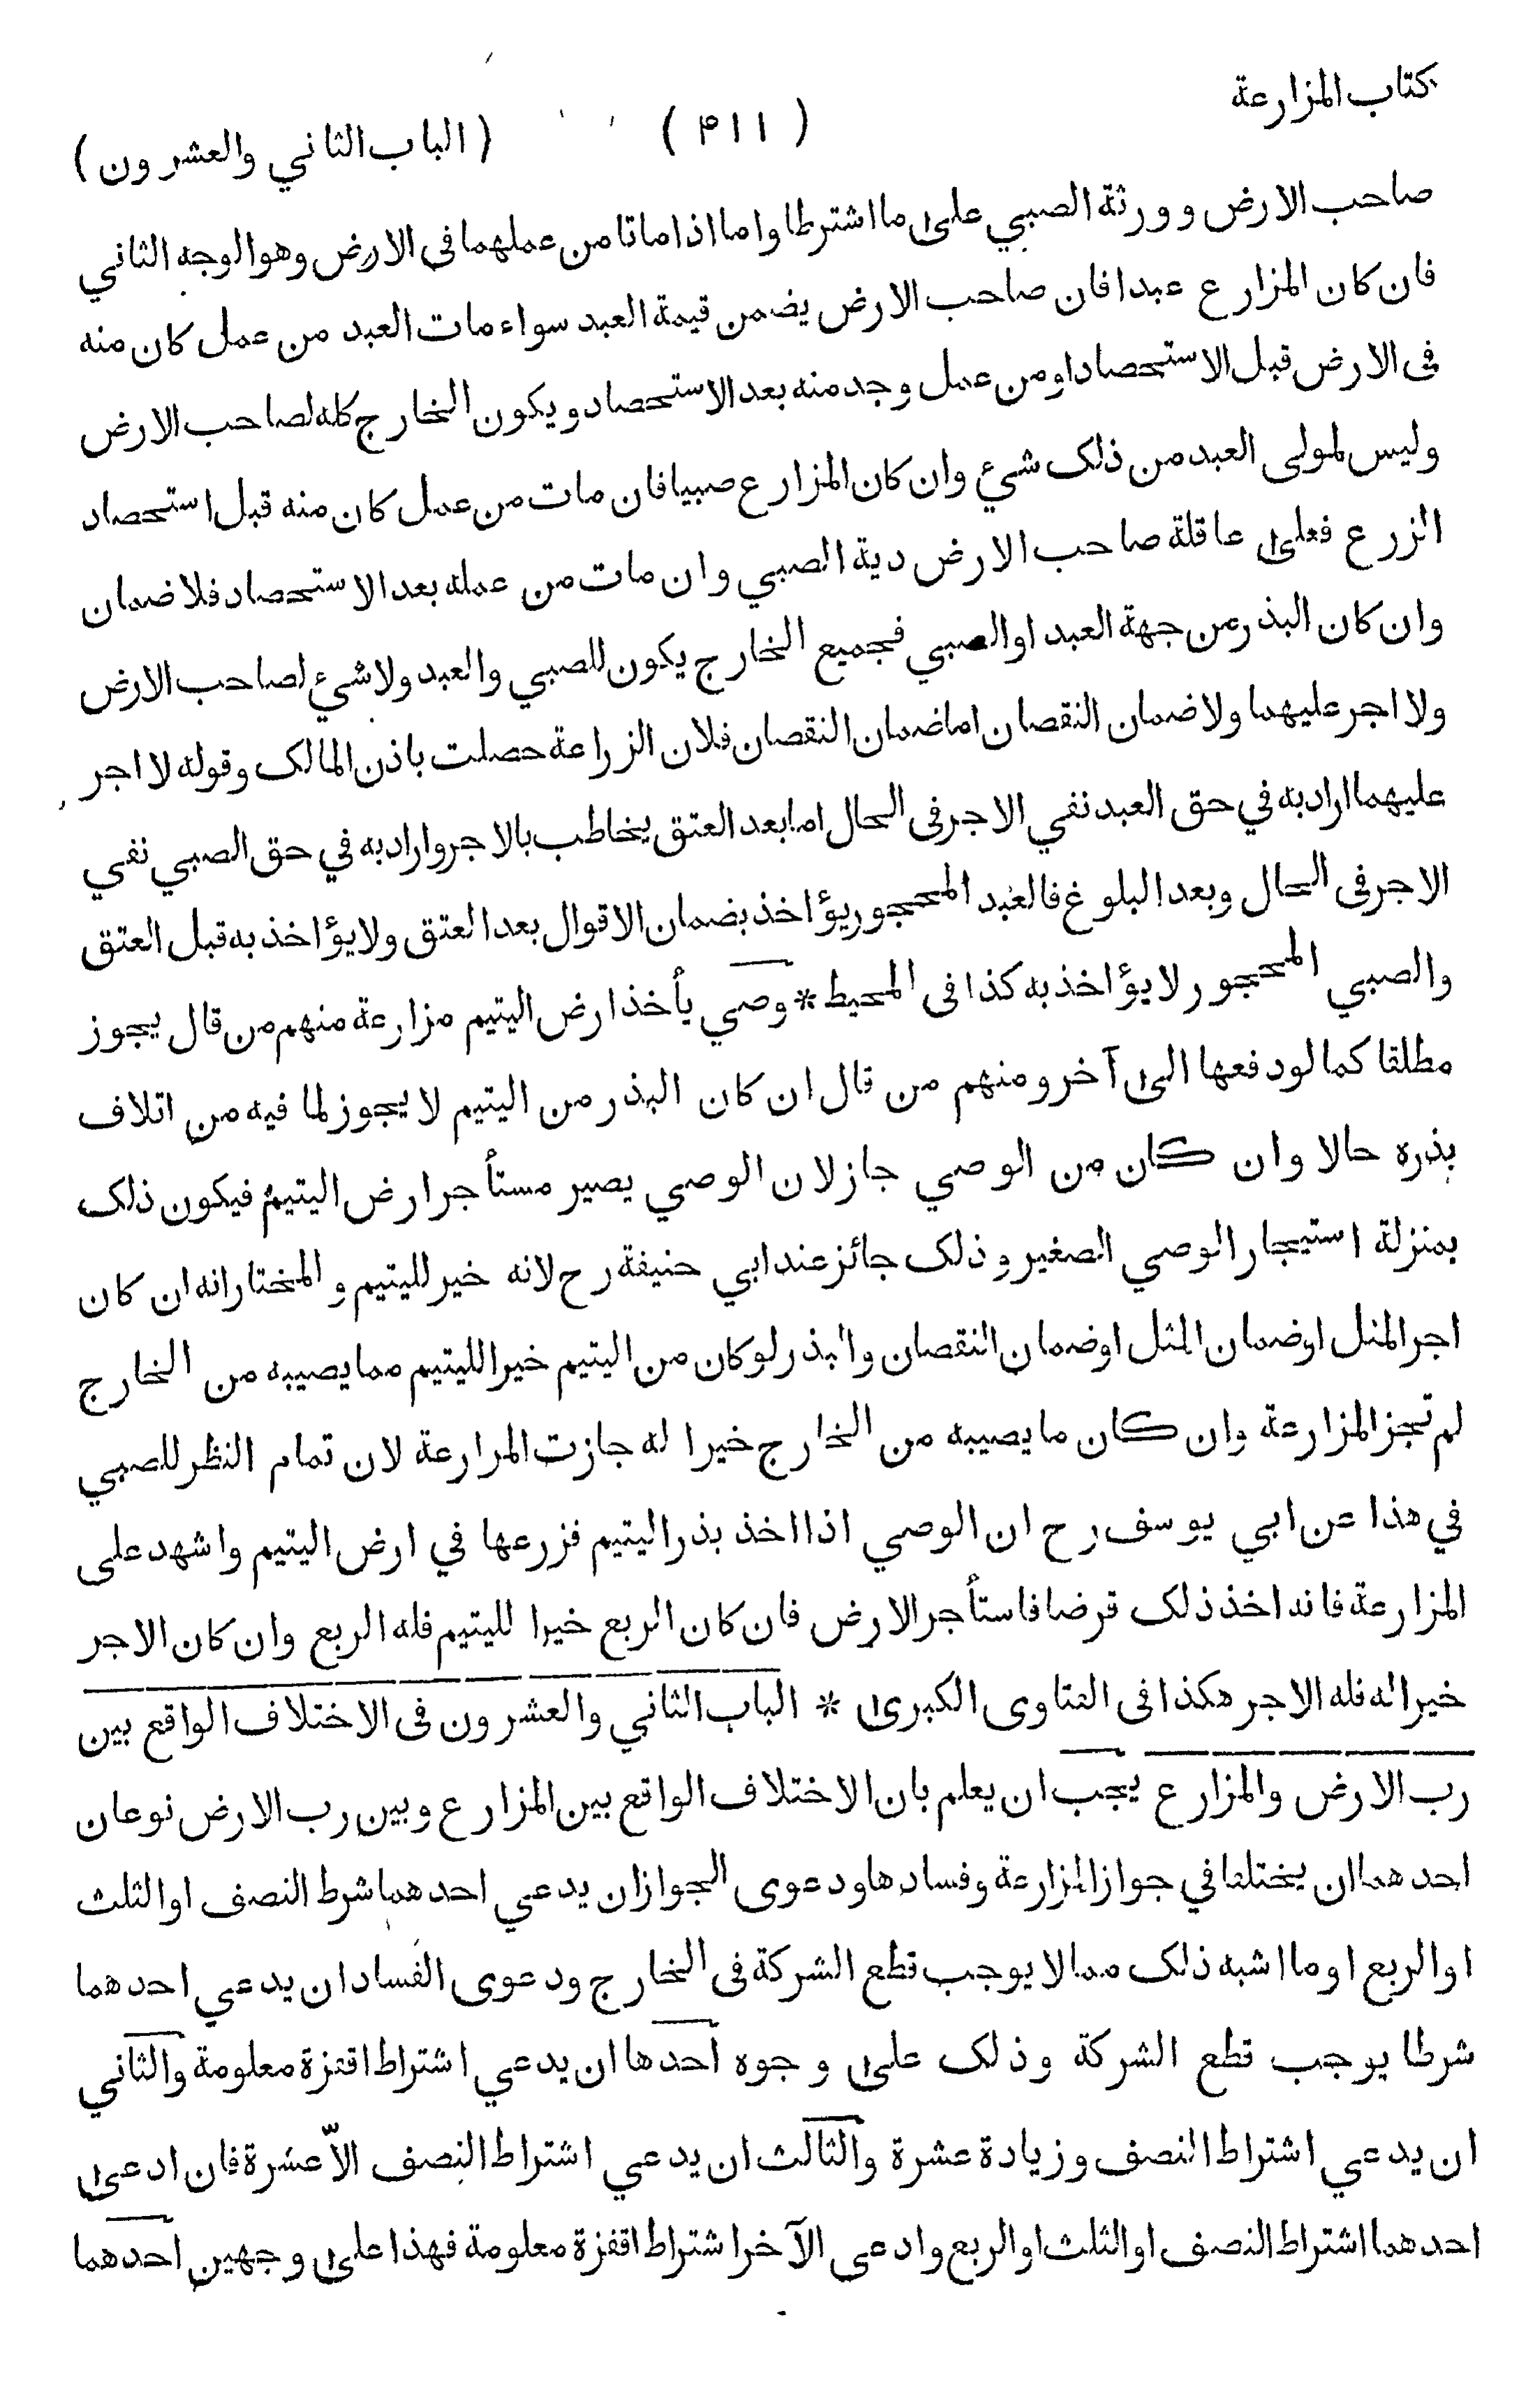 كتاب المزارعة
( ۴۱۱ )
( الباب الثاني والعشرون )
صاحب الارض وورثة الصبي على ما اشترطا واما اذا ماتا من عملهما فى الارض وهو الوجه الثاني
فان كان المزارع عبدا فان صاحب الارض يضمن قيمة العبد سواء مات العبد من عمل كان منه
فى الارض قبل الاستحصاد او من عمل وجد منه بعد الاستحصاد ويكون الخارج كله لصاحب الارض
وليس لمولى العبد من ذلك شيء وان كان المزارع صبيا فان مات من عمل كان منه قبل استحصاد
الزرع فعلى عاقلة صاحب الارض دية الصبي وان مات من عمله بعد الاستحصاد فلا ضمان
وان كان البذر من جهة العبد او الصبي فجميع الخارج يكون للصبي والعبد ولا شيء لصاحب الارض
ولا اجر عليهما ولا ضمان النقصان اما ضمان النقصان فلان الزراعة حصلت باذن المالك وقوله لا اجر
عليهما اراد به في حق العبد نفي الاجر فى الحال اما بعد العتق يخاطب بالاجر واراد به في حق الصبي نفي
الاجر فى الحال وبعد البلوغ فالعبد المحجور يؤاخذ بضمان الاقوال بعد العتق ولا يؤاخذ به قبل العتق
والصبي المحجور لا يؤاخذ به كذا فى المحيط * وصي يأخذ ارض اليتيم مزارعة منهم من قال يجوز
مطلقا كما لو دفعها الى آخر ومنهم من قال ان كان البذر من اليتيم لا يجوز لما فيه من اتلاف
بذره حالا وان كان من الوصي جاز لان الوصي يصير مستأجرا رض اليتيم فيكون ذلك
بمنزلة استيجار الوصي الصغير و ذلك جائز عند ابي حنيفة رح لانه خير لليتيم و المختار انه ان كان
اجر المثل او ضمان المثل او ضمان النقصان والبذر لو كان من اليتيم خيرا لليتيم مما يصيبه من الخارج
لم تجز المزارعة وان كان ما يصيبه من الخارج خيرا له جازت المزارعة لان تمام النظر للصبي
في هذا عن ابي يوسف رح ان الوصي اذا اخذ بذر اليتيم فزرعها في ارض اليتيم واشهد على
المزارعة فانه اخذ ذلك قرضا فاستأجر الارض فان كان الربع خيرا لليتيم فله الربع وان كان الاجر
خيرا له فله الاجر هكذا فى الفتاوى الكبرى * الباب الثاني والعشرون فى الاختلاف الواقع بين
رب الارض والمزارع يجب ان يعلم بان الاختلاف الواقع بين المزارع وبين رب الارض نوعان
احدهما ان يختلفا في جواز المزارعة وفسادها ودعوى الجواز ان يدعي احدهما شرط النصف او الثلث
او الربع او ما اشبه ذلك مما لا يوجب قطع الشركة فى الخارج ودعوى الفساد ان يدعي احدهما
شرطا يوجب قطع الشركة وذلك على وجوه احدها ان يدعي اشتراط اقفزة معلومة والثاني
ان يدعي اشتراط النصف وزيادة عشرة والثالث ان يدعي اشتراط النصف الاّ عشرة فان ادعى
احدهما اشتراط النصف او الثلث او الربع وادعى الآخر اشتراط اقفزة معلومة فهذا على وجهين احدهما